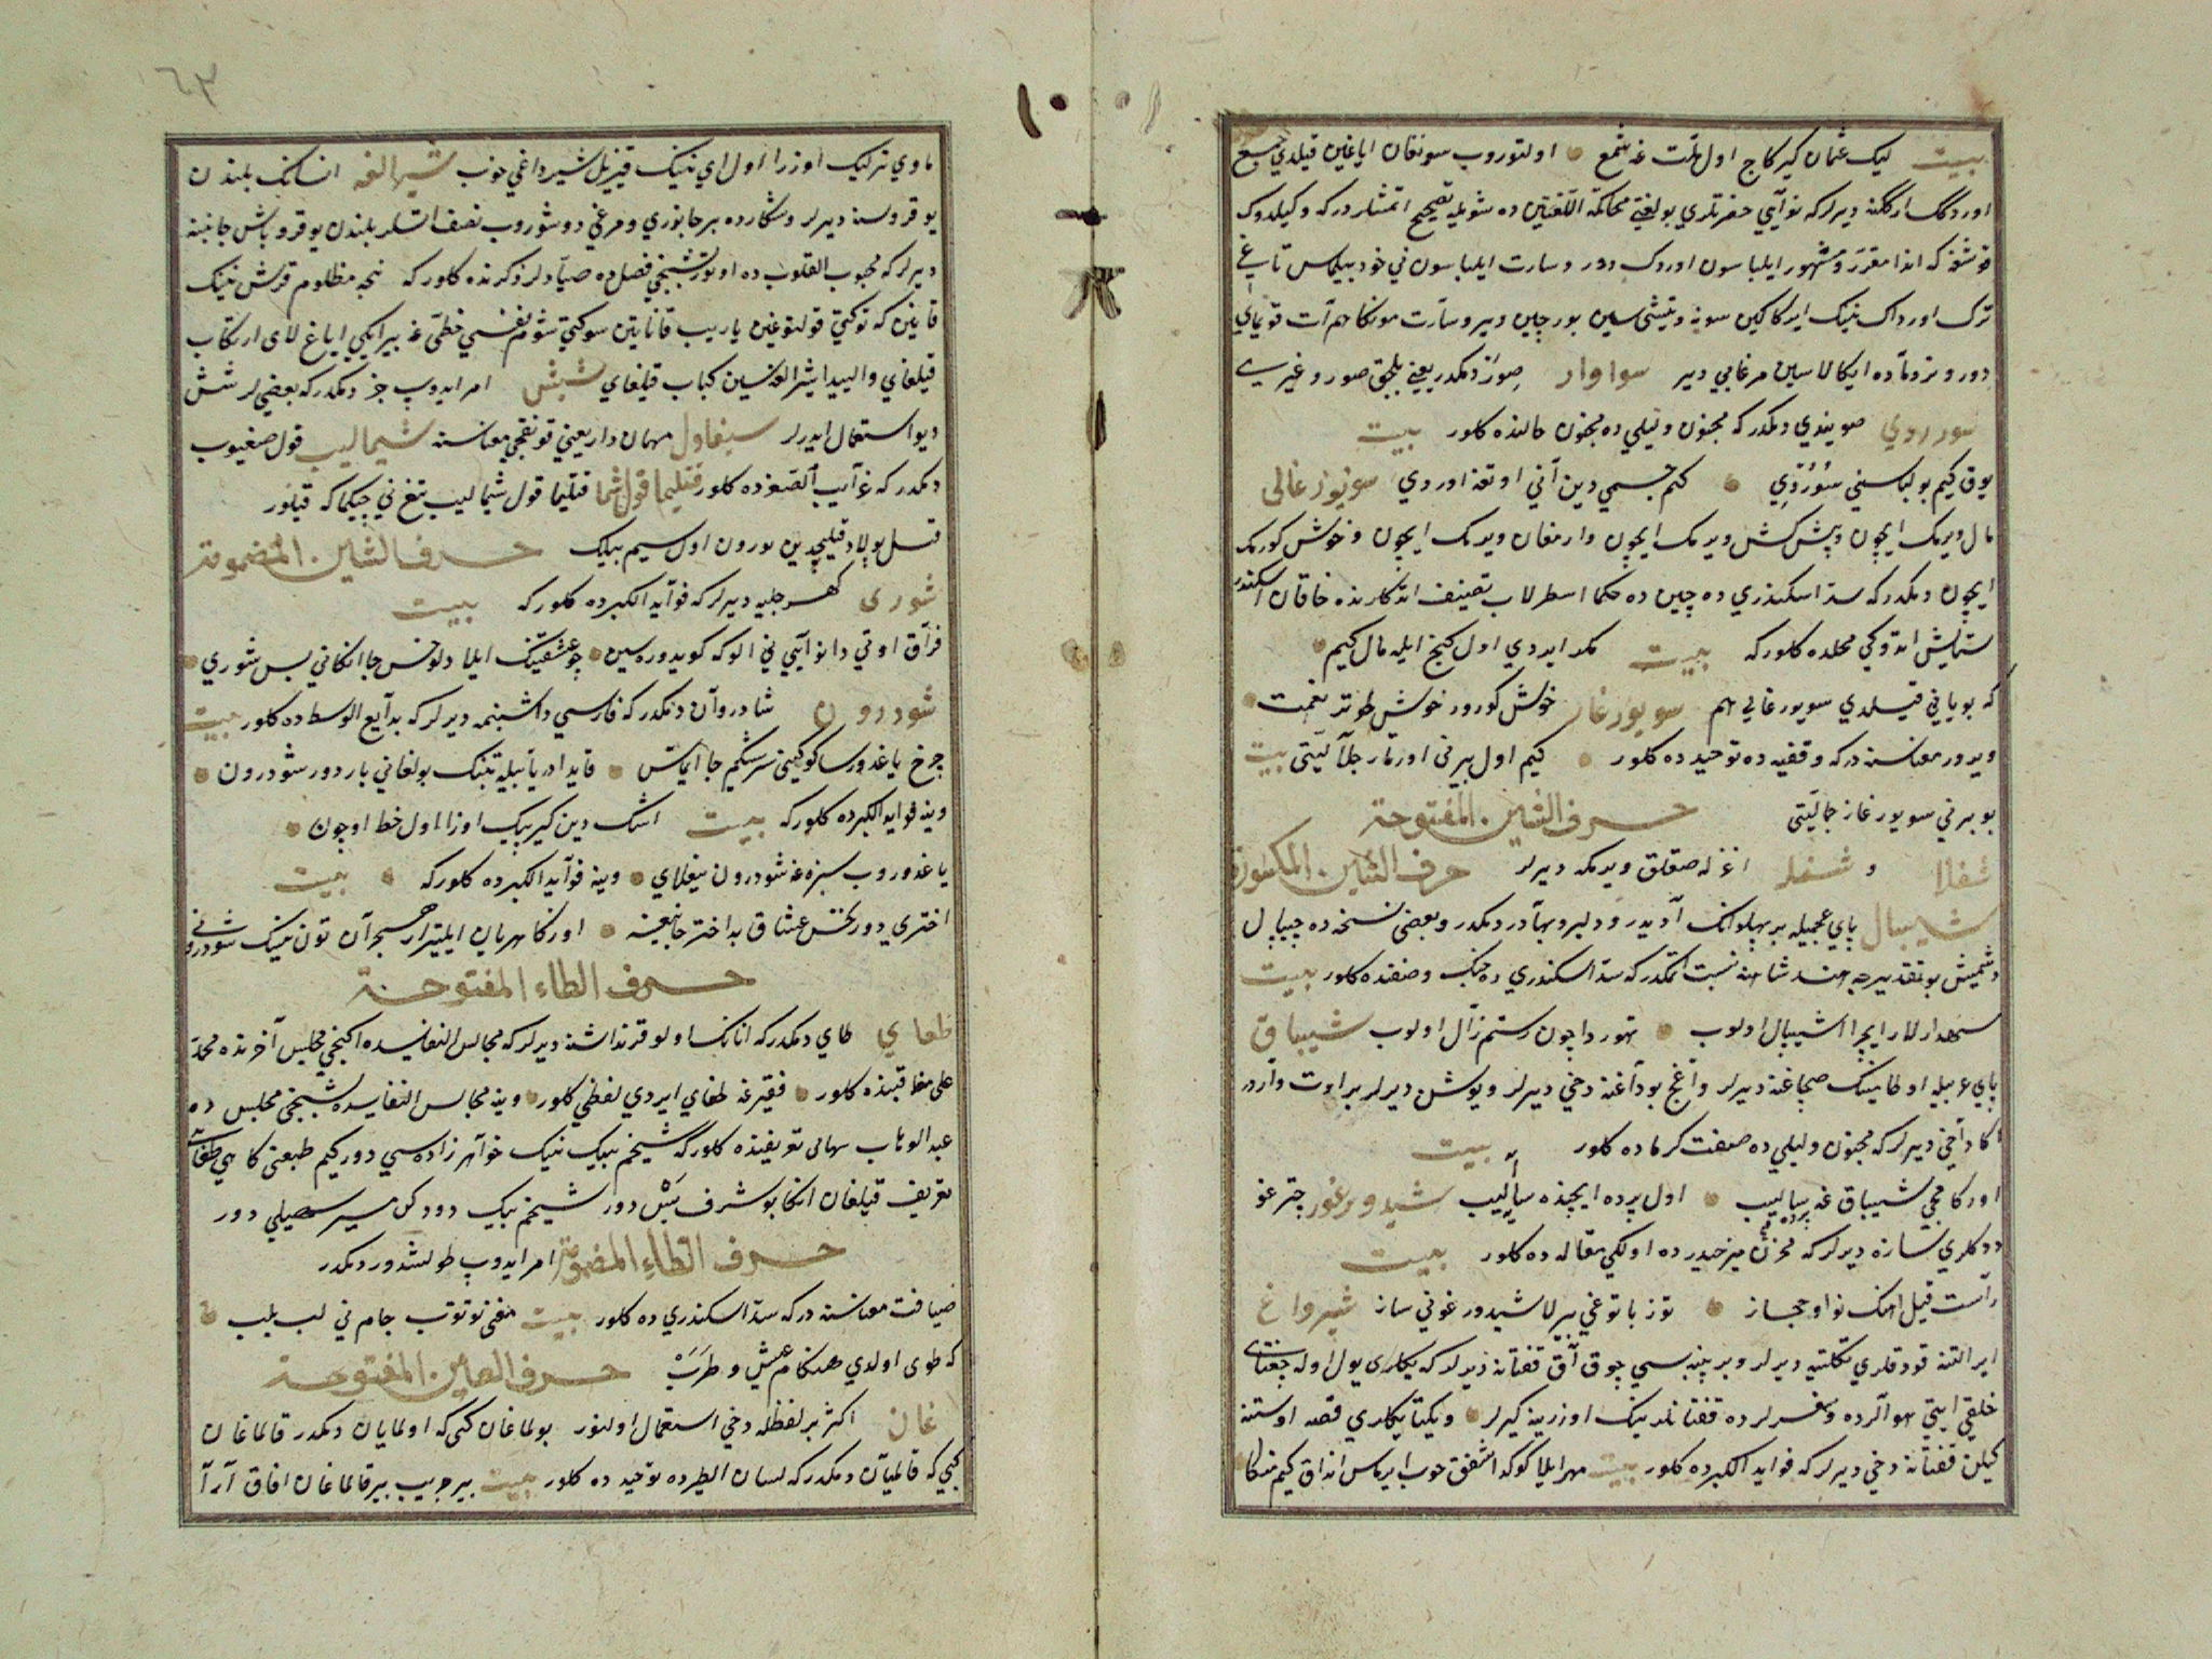 بيت ليك عثمان كيركاج اول ملت غه شمع اولتوروب سونقان اياغين قيلدي جمع
اوردك اركگنه ديرلركه نوآيي حضرتلري بولغتي محاكمة اللغتين ده شويله تصحيح اتمشلردركه وكيلدوك
قوشقه كه اندا مقرر ومشهور ايلباسون اوردك دور وسارت ايلباسون ني خود بيلماس تاغي
ترك اورداك نينك ايركاكين سونه وتيشي سين بورچين دير وسارت مونكا هم آت قويماي
دور ونر وماده ايكالاسين مرغابي دير سواوار صوار ديمكدر يعني بلجق صور وغيري
سورردي صوينوي ديمكدر كه مجنون وليلي ده مجنون حالنده كلور بيت
يوق كيم بو لباسني سوردي كم جسمي دين آني اوتغه اوردي سويورغالي
مال ويرمك ايچون وپيش كش ويرمك ايچون وارمغان ويرمك ايچون وخوش كورمك
ايچون ديمكدر كه سد اسكندري ده چين ده حكما اسطرلاب تصنيف اتدكلرنده خاقان اسكندر
ستايش اتدوكي محلده كلوركه بيت مكر ايردي اول گنج ايله مال كيم
كه بوياني قيلدي سويورغالي هم سويورغار خوش كورور خوش طوتر نعمت
ويرور معناسنه دركه وقفيه ده توحيد ده كلور كيم اول بيرني اورتار جلاليتي بيت
بو برني سويورغار جماليتي حرف الشين المفتوحة
شغلا و شغلر اغزله صقلق ويرمكه ديرلر حرف الشين المكسورة
شيبال ياي عجميله بر پهلوانك آديدر ودلير وبهادر ديمكدر وبعضي نسخه ده چيپال
دشمش بو تقديرجه هند شاهنه نسبت اتمكدر كه سد اسكندري ده جنك وصفنده كلور بيت
سپهدارلار ايچرا شيبال اولوب تهوردا چون رستم زال اولوب شيباق
ياي عربيله اوطاينك صچاغنه ديرلر واغج بوداغنه دخي ديرلر ويوشن ديرلر بر اوت واردر
اكا دخي ديرلركه مجنون وليلي ده صفت كرماده كلور بيت
اوركامجي شيباق غه سياليب اول پرده ايچنده سياليب شيدورغو چترغو
ددكلري سازه ديرلركه مخزن ميرحيدرده اولكي مقاله ده كلور بيت
راست قيل اهنك نوا وحجاز توز باتوغني بيرلا شيدورغوني ساز شيرداغ
اير التنه قودقلري تكلتيه ديرلر وبر پنبه سي چوق آق قفتانه ديرلر كه يكلري يول اوله جغتاي
خلقي ايتي هوالرده وسفرلرده قفتانلرينك اوزرينه كيرلر ويكتا يكلري قصه اوستنه
كيلن قفتانه دخي ديرلركه فوايد الكبرده كلور بيت مهر ايلا كوكدا شفق خوب ايرماس انداق كيم منكا
٦٣
ماوي تركليك اوزرا اول اي نينك قيزيل شيرداغي خوب شيرالغه انسانك بلندن
يوقروسنه ديرلر وشكارده بر جانوري ومرغي دوشوروب نصف اتسلر بلندن يوقرو باش جانبنه
ديرلركه محبوب القلوب ده اوتوز بشنجي فصلده صيادلر ذكرنده كلوركه نجه مظلوم قوش نينك
قانين كه توكتي قولتوغين ياريب قاناتين سوكتي شوم نفسي خطي غه بير ايكي اياغ لاي ارتكاب
قيلغاي واليدا شيرالغه سين كباب قيلغاي شيش امر ايدوب چز ديمكدر كه بعضيلر شش
ديو استعمال ايدرلر سيغاول مهمان دار يعني قونقجي معناسنه شيماليب قول صغيوب
ديمكدر كه غرآيب الصغرده كلور قتليما قول شما قتليما قول شيماليب تيغ ني چيكما كه قيلور
قتل پولاد قيليچدين بورون اول سيم بيلك حرف الشين المضمومة
شوري كهرجله ديرلركه فوآيد الكبرده كلوركه بيت
فراق اوتي دا نوآيي ني الوكه كويدوره سين چو عشقينك ايلا دلونس جا انكاني بس شوري
شودرون شادروان ديمكدر كه فارسي داشبنمه ديرلركه بدآيع الوسط ده كلور بيت
چرخ ياغدورسا كوكينى سرشكيم جا ايماس قايدا درياىيله تينك بولغاني باردور شودرون
وينه فوايد الكبرده كلوركه بيت اشك دين كيرپيك اوزا اول خط اوچون
ياغدوروب سبزه غه شودرون يغلاي وينه فوآيد الكبرده كلوركه بيت
اختري دور نحس عشاق بد اختر جانيغه اورنكا مهربان ايليتار هجران تون نينك شودروني
حرف الطاء المفتوحة
طغاي طاي ديمكدر كه انانك اولو قرنداشنه ديرلركه مجالس النفايسده ايكنجي مجلس آخرنده محمد
علي مناقبنده كلور فقيرغه طغاي ايردي لفظي كلور وينه مجالس النفايسده بشنجي مجلس ده
عبد الوهاب سهاني تعريفنده كلوركه شيخم بيك نينك خواهر زاده سي دور كيم طبعني كاهي طغاي
تعريف قيلغان انكا بو شرف بس دور شيخم بيك دودكن سير سهيلي دور
حرف الطاء المضمومة امر ايدوب طولشدور ديمكدر
ضيافت معناسنه دركه سد اسكندري ده كلور بيت مغني توتوب جام ني لب بلب
كه طوى اولدي هنكام عيش وطرب حرف الغين المفتوحة
غان اكثر بر لفظله دخي استعمال اولنور بولماغان كي كه اولمايان ديمكدر قالماغان
كبي كه قالميان ديمكدر كه لسان الطيرده توحيد ده كلور بيت بير جريب بير قالماغان افاق آرا